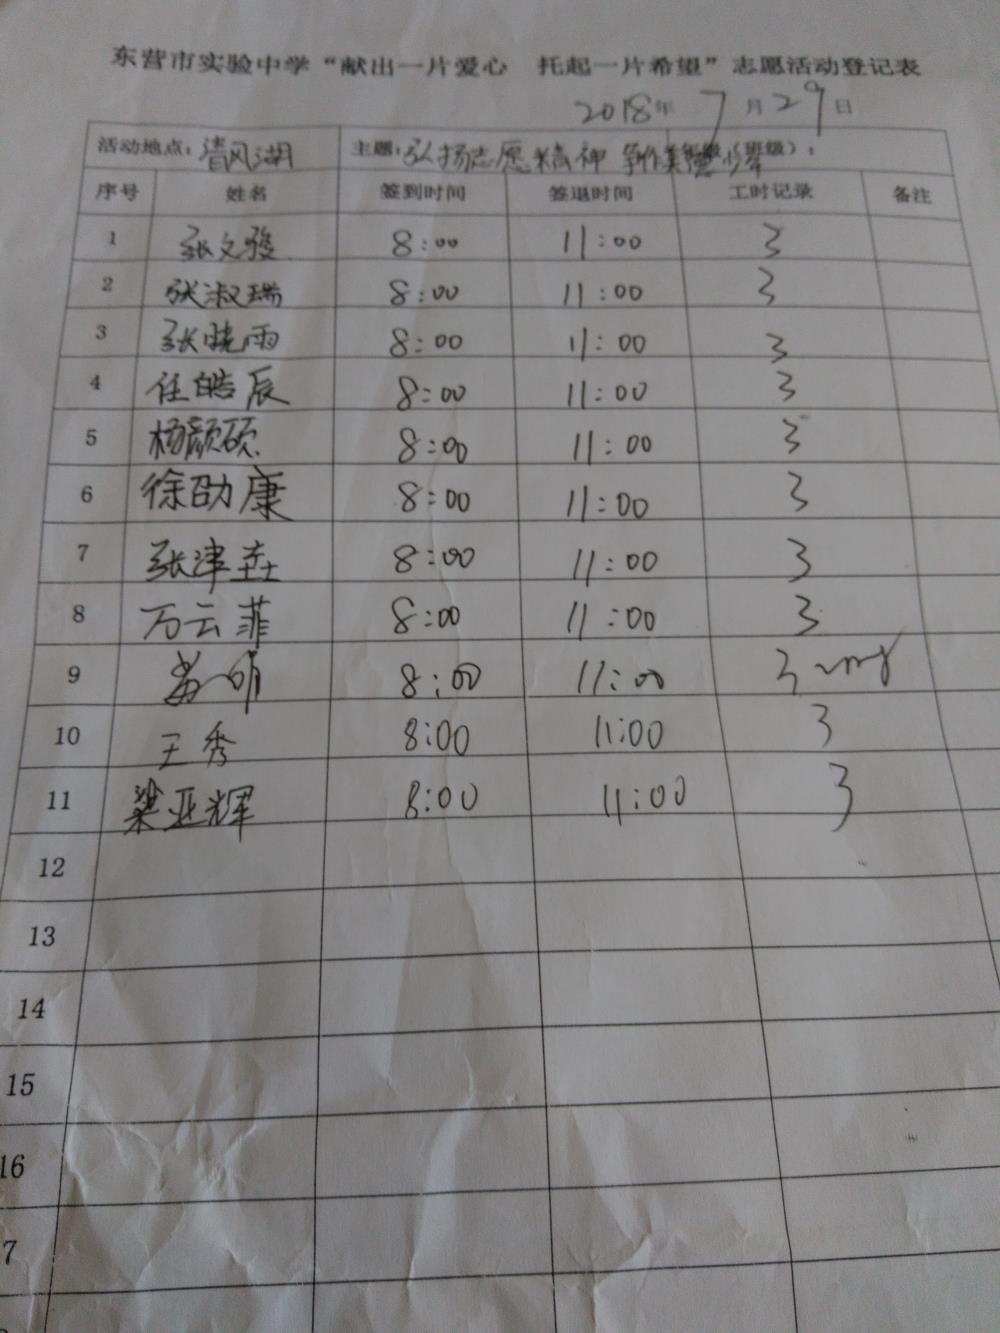 东营市实验中学“献出一片爱心 托起一片希望”志愿活动登记表
2018年7月29日
活动地点：清风湖 主题：弘扬志愿精神 争作美德少年 （班级）：
序号 姓名 签到时间 签退时间 工时记录 备注
1 张文骏 8:00 11:00 3
2 张淑瑞 8:00 11:00 3
3 张晓雨 8:00 11:00 3
4 任皓辰 8:00 11:00 3
5 杨颜硕 8:00 11:00 3
6 徐劭康 8:00 11:00 3
7 张津 8:00 11:00 3
8 万云菲 8:00 11:00 3
9 8:00 11:00 3
10 王秀 8:00 11:00 3
11 梁亚辉 8:00 11:00 3
12
13
14
15
16
7